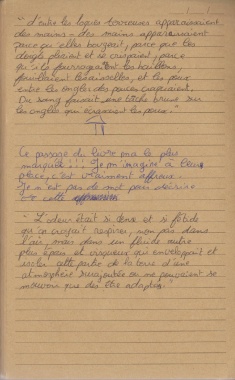 "d'entre les loques terreuses apparaissaient
des mains - des mains apparaissaient
parce qu'elles bougeaient, parce que les
doigts pliaient et se crispaient, parce
qu'ils fourrageaient les haillons,
fouillaient les aisselles, et les poux
entre les ongles des pouces craquaient.
Du sang faisait une tâche brune sur
les ongles qui écrasaient les poux."
Ce passage du livre m'a le plus
marquée !!! Je m'imagine à leur
place, c'est vraiment affreux.
Je n'est pas de mot pour décrire
cette
"L'odeur était si dense et si fétide
qu'on croyait respirer, non pas dans
l'air, mais dans un fluide autre
plus épais et visqueux qui enveloppait et
isolait cette partie de la terre d'une
atmosphère surajoutée où ne pouvaient se
mouvoir que des êtres adaptés."